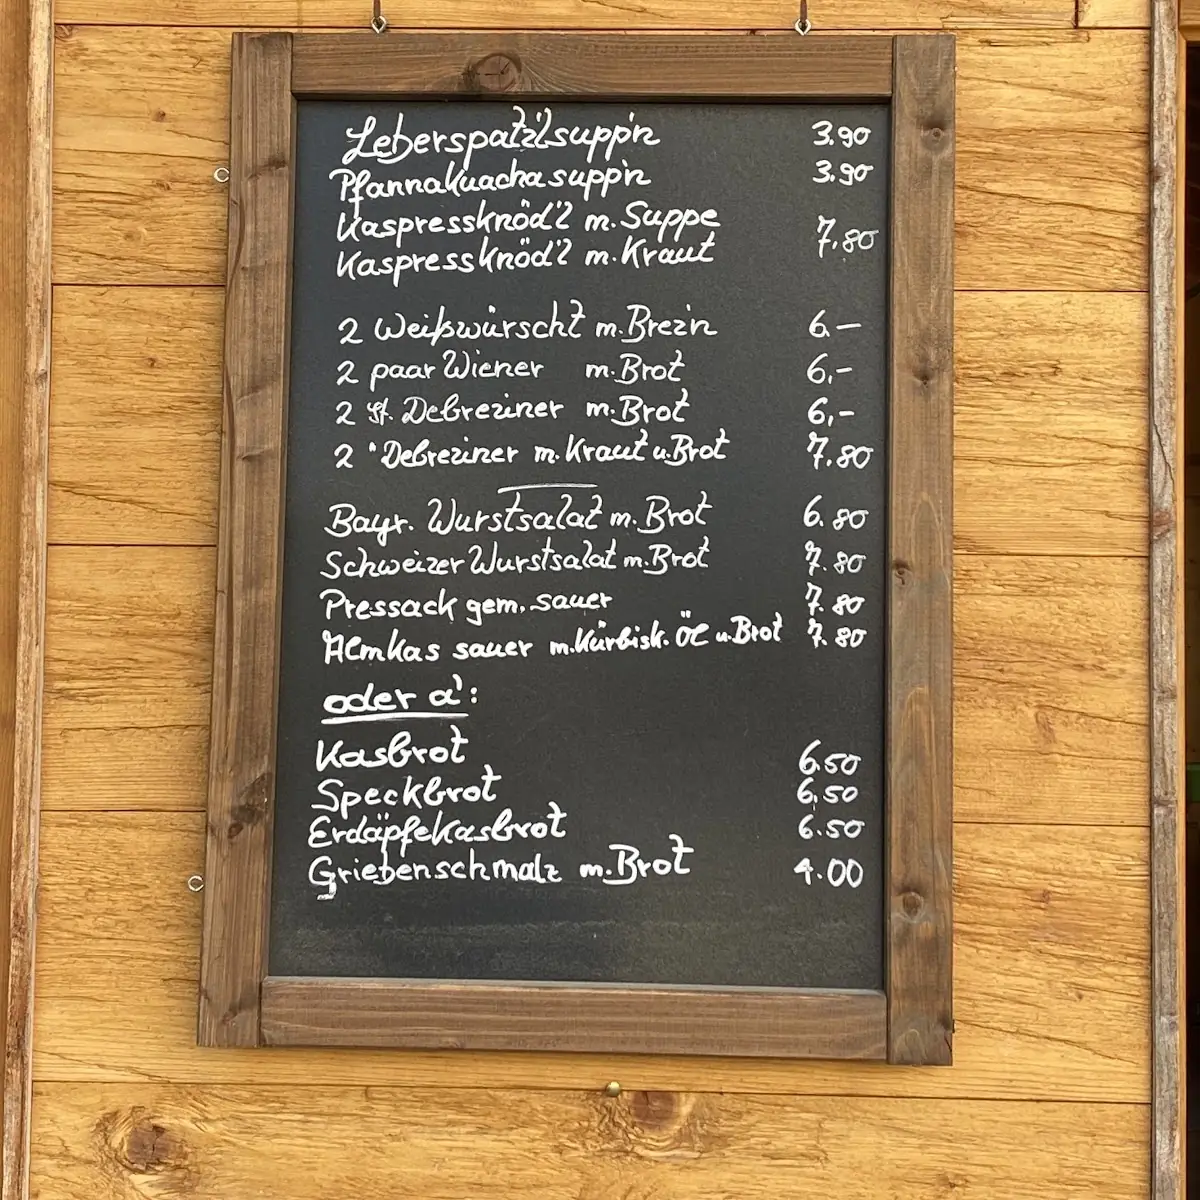 Leberspatz'lsupp'n 3.90
Pfannakuachasupp'n 3.90
Kaspressknöd'l m. Suppe
Kaspressknöd'l m. Kraut 7.80
2 Weißwürscht m. Brez'n 6.—
2 paar Wiener m. Brot 6,-
2 St. Debreziner m. Brot 6,-
2 " Debreziner m. Kraut u. Brot 7.80
Bayr. Wurstsalat m. Brot 6.80
Schweizer Wurstsalat m. Brot 7.80
Pressack gem. sauer 7.80
Almkas sauer m. Kürbisk. Öl u. Brot 7.80
oder a':
Kasbrot 6.50
Speckbrot 6,50
Erdäpfekasbrot 6.50
Griebenschmalz m. Brot 4.00